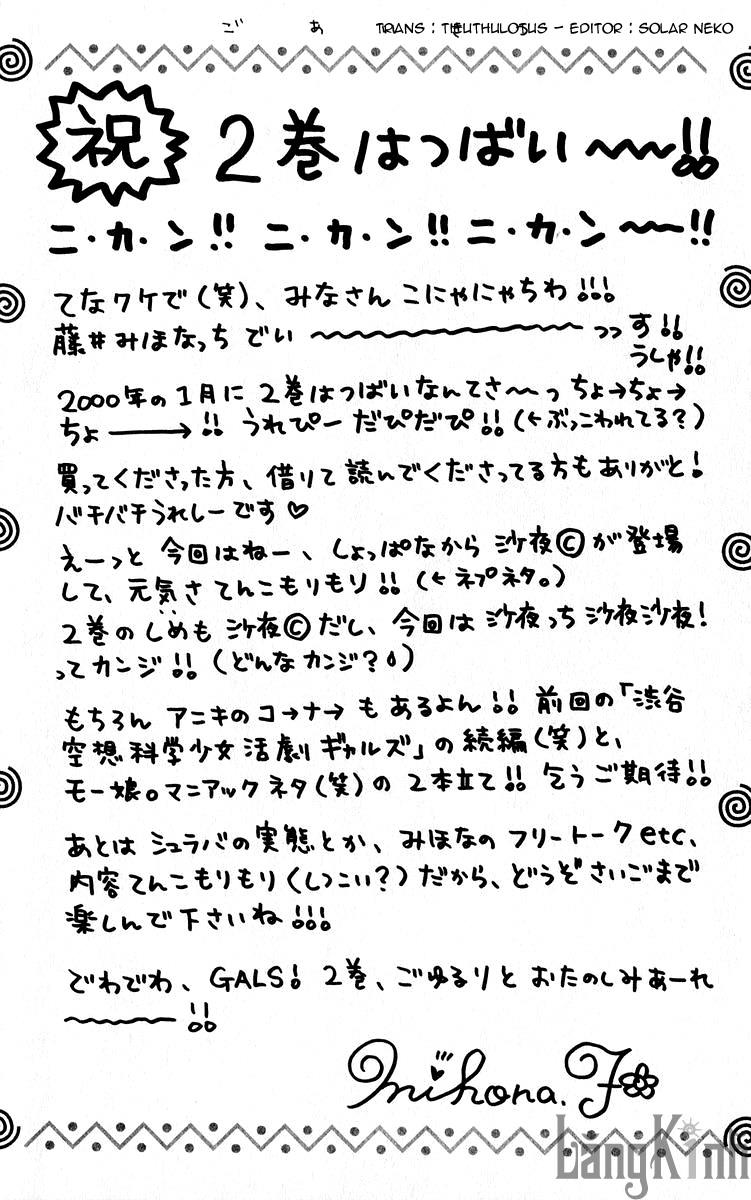 ごあ
TRANS : TIEUTHULOTUS - EDITOR : SOLAR NEKO
祝 2巻はつばい〜〜!!
ニ・カ・ン!! ニ・カ・ン!! ニ・カ・ン〜〜!!
てなワケで(笑)、みなさん こにゃにゃちわ!!!
藤井みほなっち でい〜〜〜〜〜〜〜〜っっ す!!
うしゃ!!
2000年の1月に 2巻はつばいなんてさ〜〜っ ちょ→ちょ→
ちょ―――→!! うれぴー だぴだぴ!!(←ぶっこわれてる?)
買ってくださった方、借りて読んでくださってる方もありがと!
バチバチうれしーです♡
えーっと 今回はねー、しょっぱなから 沙夜©が登場
して、元気さ てんこもりもり!!(←ネプネタ。)
2巻のしめも 沙夜©だし、今回は沙夜っち 沙夜沙夜!
ってカンジ!!(どんなカンジ?)
もちろん アニキのコ→ナ→も あるよん!! 前回の「渋谷
空想科学少女活劇ギャルズ」の続編(笑)と、
モー娘。マニアックネタ(笑)の 2本立て!! 乞うご期待!!
あとは シュラバの実態とか、みほなの フリートークetc、
内容てんこもりもり(しつこい?)だから、どうぞさいごまで
楽しんで下さいね!!!
でわでわ、GALS! 2巻、ごゆるりと おたのしみあーれ
〜〜〜〜!!
Mihona. F
LangKinn